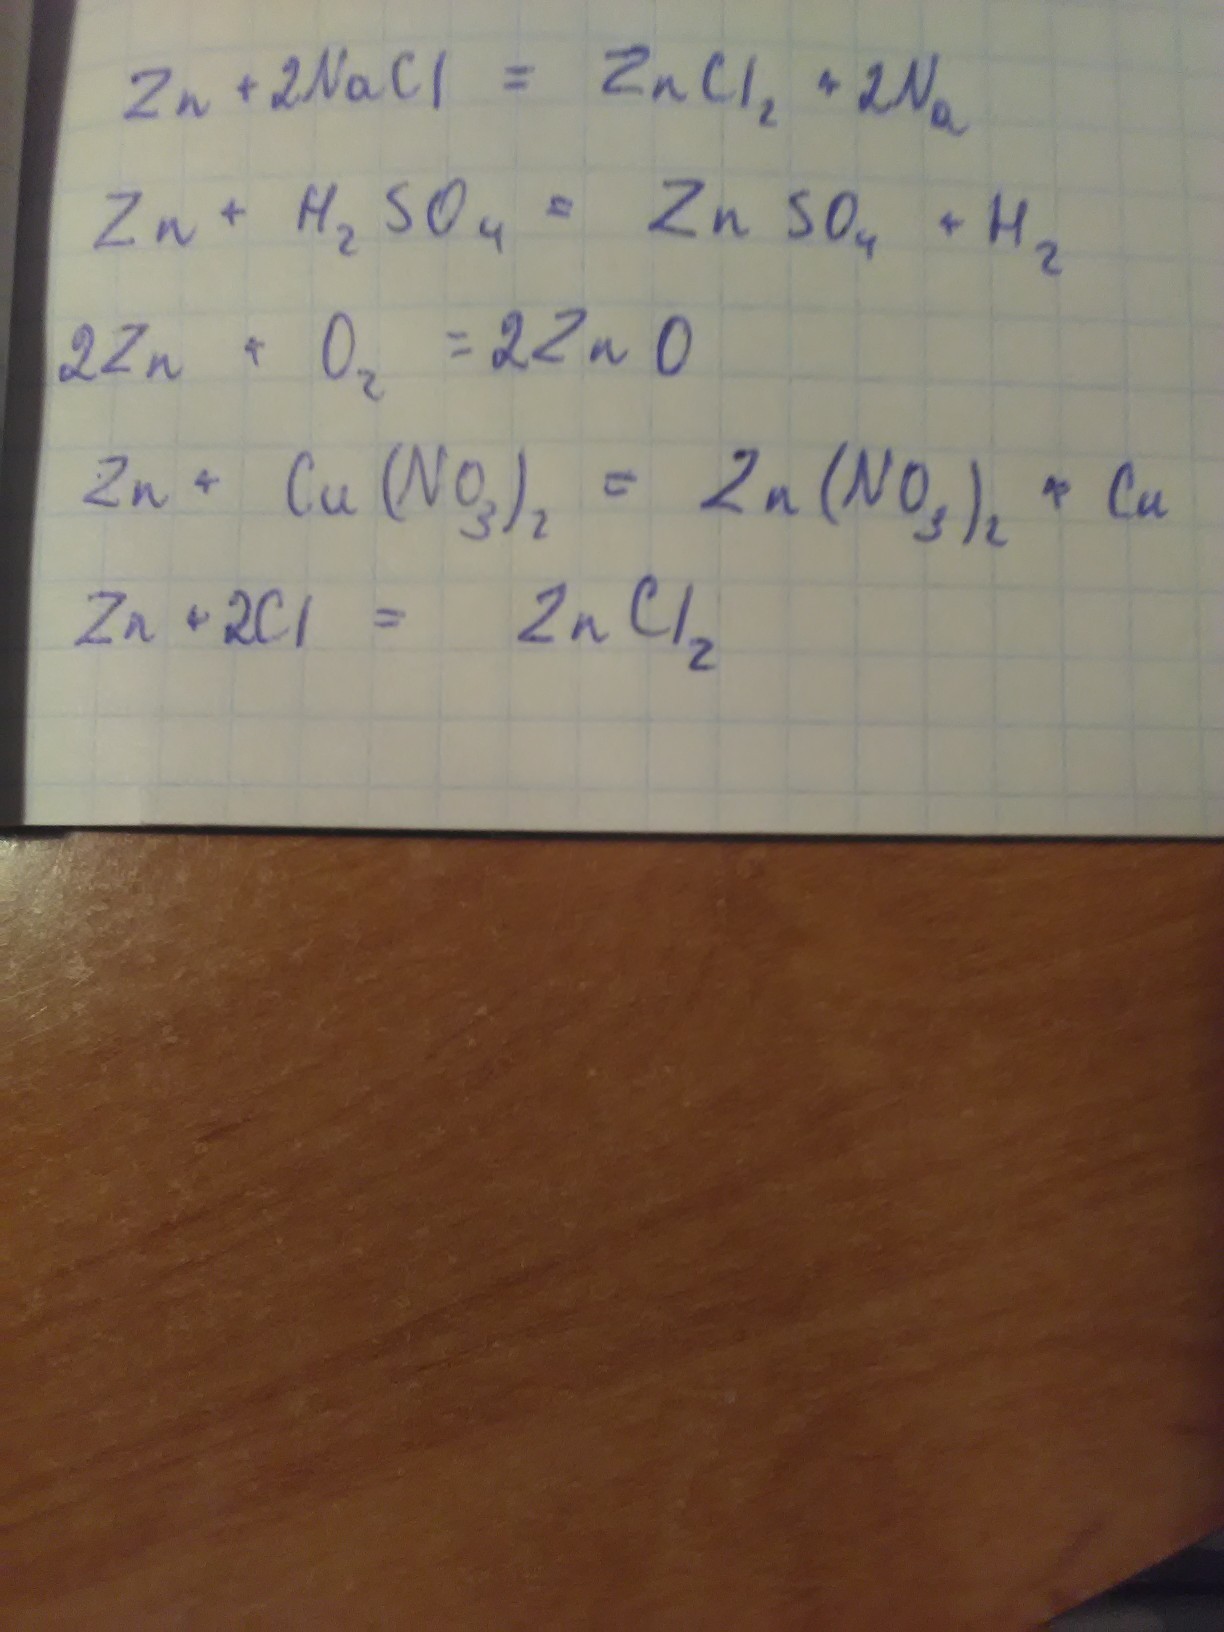 Zn + 2NaCl = ZnCl₂ + 2Na
Zn + H₂SO₄ = ZnSO₄ + H₂
2Zn + O₂ = 2ZnO
Zn + Cu(NO₃)₂ = Zn(NO₃)₂ + Cu
Zn + 2Cl = ZnCl₂